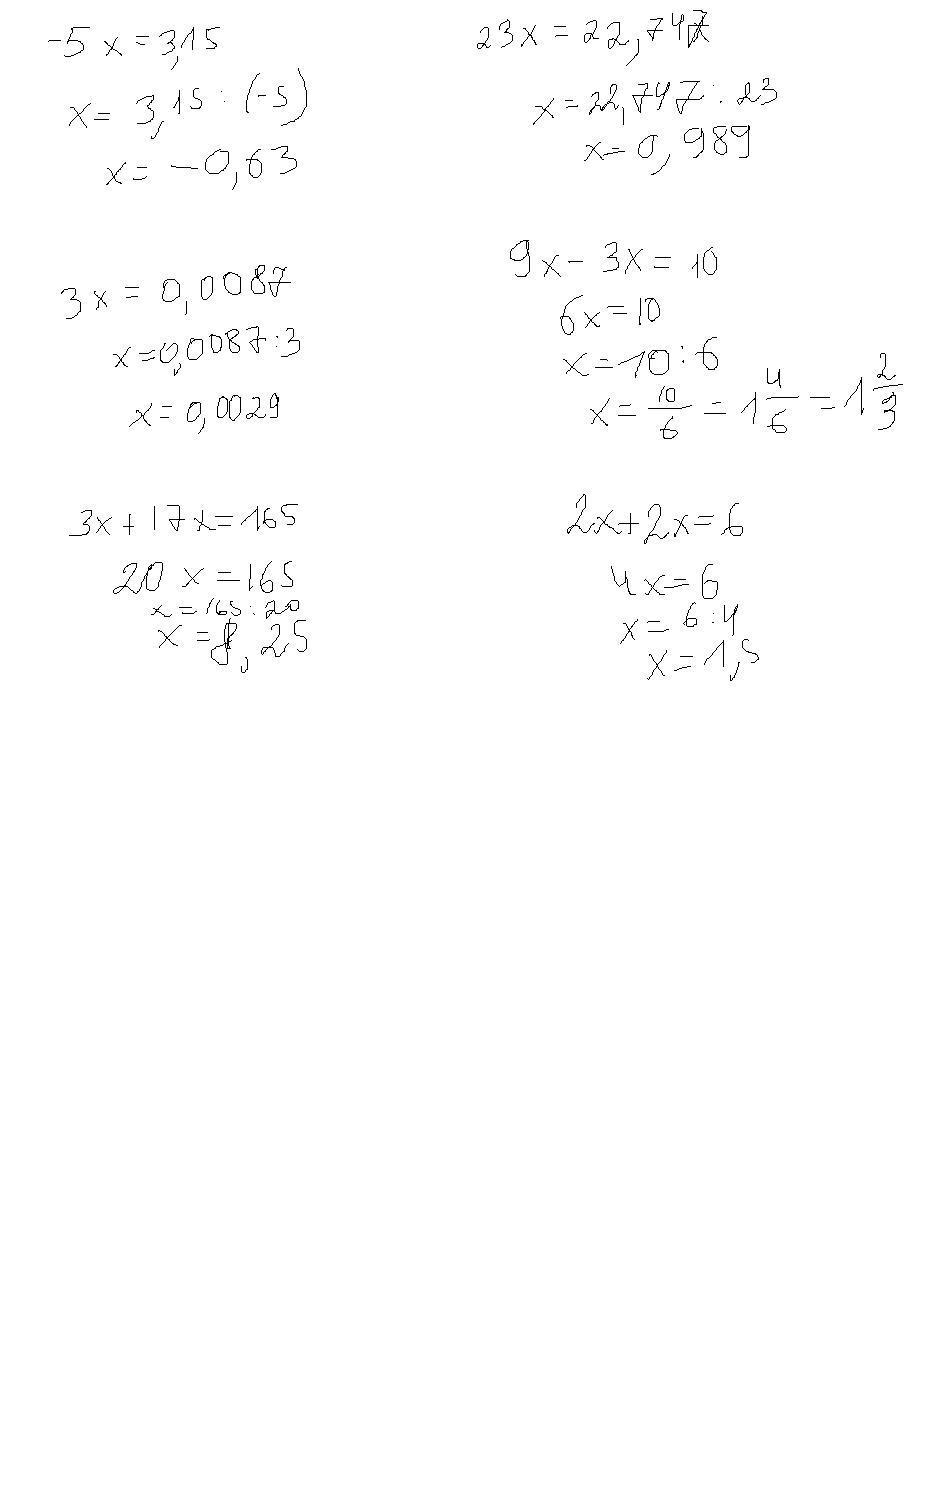 -5x=3,15
x=3,15:(-5)
x=-0,63
23x=22,747
x=22,747:23
x=0,989
3x=0,0087
x=0,0087:3
x=0,0029
9x-3x=10
6x=10
x=10:6
x=10/6=1 4/6=1 2/3
3x+17x=165
20x=165
x=165:20
x=8,25
2x+2x=6
4x=6
x=6:4
x=1,5